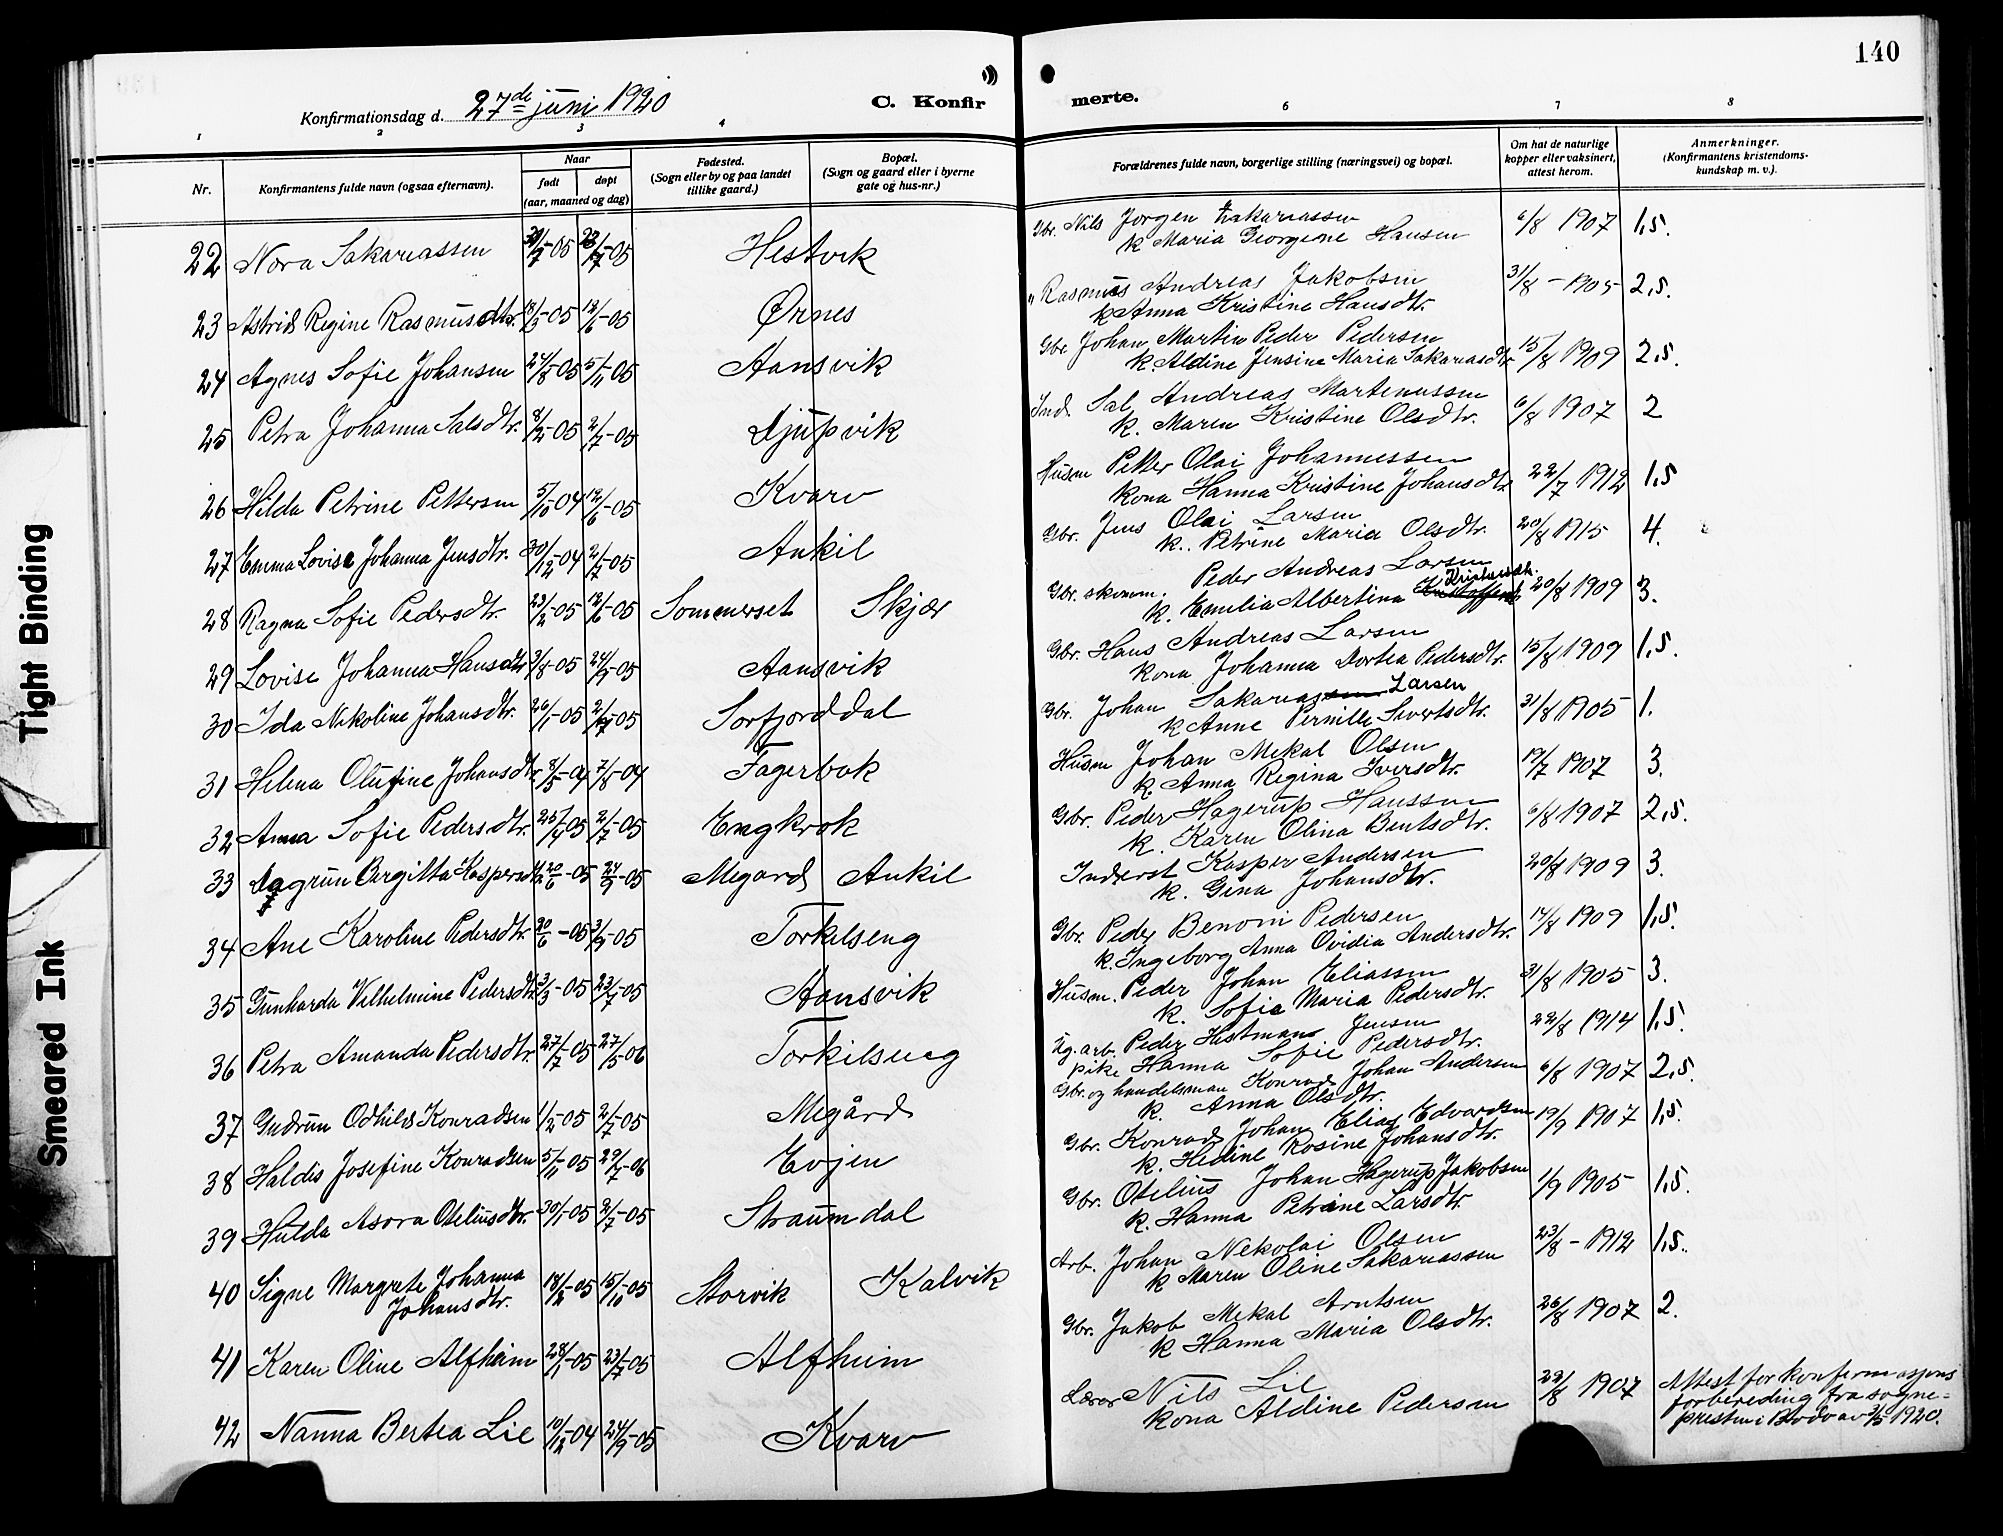 140
Konfirmationsdag d. 27de juni 1920
C. Konfirmerte.
1 2 3 4 6 7 8
Nr.
Konfirmantens fulde navn (ogsaa efternavn).
Naar
født døpt
(aar, maaned og dag)
Fødested.
(Sogn eller by og paa landet
tillike gaard.)
Bopæl.
(Sogn og gaard eller i byerne
gate og hus-nr.)
Forældrenes fulde navn, borgerlige stilling (næringsvei) og bopæl.
Om hat de naturlige
kopper eller vaksinert,
attest herom.
Anmerkninger.
(Konfirmantens kristendoms-
kundskap m. v.).
22 Nora Sakariassen -05 -05 Hestvik Gbr. Nils Jørgen Zakariassen 6/8 1907 1,5.
k Maria Georgine Hansen
23 Astrid Regine Rasmusdtr. 18/3-05 12/6-05 Ørnes " Rasmus Andreas Jakobsen 31/8-1905 2,5.
k Anna Kristine Hansdtr.
24 Agnes Sofie Johansen 24/8-05 5/11-05 Hansvik Gbr. Johan Martin Peder Pedersen 15/8 1909 2,5.
k. Aldine Jensine Maria Sakariasdtr
25 Petra Johanna Salsdtr. 8/2-05 2/7-05 Djupvik Ind. Sal Andreas Martenussen 6/8 1907 2
k. Maren Kristine Olsdtr.
26 Hilda Petrine Pettersen 5/10-04 12/6-05 Kvarv Husm Petter Olai Johannessen 22/7 1912 1,5
kona Hanna Kristine Johansdtr
27 Emma Lovise Johanna Jensdtr. 30/12-04 2/7-05 Ankil Gbr. Jens Olai Larsen 20/8 1915 4.
k. Petrine Maria Olsdtr.
28 Ragna Sofie Pedersdtr. 23/2-05 12/6-05 Sommerset Skjær Gbr. skomm. Peder Andreas Larsen 20/8 1909 3.
k. Emilia Albertina
29 Lovise Johanna Hansdtr 3/8-05 24/9-05 Aansvik Gbr. Hans Andreas Larsen 15/8 1909 1,5.
kona Johanna Dortea Pedersdtr.
30 Ida Nikoline Johansdtr. 26/1-05 2/7-05 Sørfjorddal Gbr. Johan Sakarias Larsen 31/8 1905 1.
k Anne Pernille Sivertsdtr.
31 Helena Olufine Johansdtr 8/5-04 7/8-04 Fagerbak Husm Johan Mekal Olsen 19/7 1907 3.
k. Anna Regina Iversdtr.
32 Anna Sofie Pedersdtr. 25/4-05 2/7-05 Engkrok Gbr. Peder Hagerup Hanssen 6/8 1907 2,5.
k. Karen Olina Bentsdtr.
33 Dagrun Birgitta Kaspersdtr 20/6-05 24/9-05 Megard Ankil Inderst Kasper Andersen 20/8 1909 3.
k. Gina Johansdtr.
34 Ane Karoline Pedersdtr. 20/6-05 3/9-05 Torkilseng Gbr. Peder Benoni Pedersen 14/8 1909 1,5
k. Ingeborg Anna Ovidia Andersdtr.
35 Gunharda Vilhelmine Pedersdtr 3/3-05 23/7-05 Hansvik Husm. Peder Johan Eliassen 31/8 1905 3.
k. Sofie Maria Pedersdtr.
36 Petra Amanda Pedersdtr. 27/7-05 27/5-06 Torkilseng Ug. arb. Peder Hestmann Jensen 22/8 1914 1,5.
pike Hanna Sofie Pedersdtr.
37 Gudrun Odhild Konradsen 1/2-05 2/7-05 Megård Gbr. og handelsman Konrad Johan Andersen 6/8 1907 2,5.
k. Anna Olsdtr.
38 Haldis Josefine Konradsen 5/11-05 22/7-06 Evjen Gbr. Konrad Johan Elias Edvardsen 19/9 1907 1,5.
k. Hedine Rosine Johansdtr.
39 Hulda Asora Oteliusdtr. 30/1-05 2/7-05 Straumdal Gbr. Otelius Johan Hagerup Jakobsen 1/9 1905 1,5.
k. Hanna Petrine Larsdtr.
40 Signe Margrete Johanna 18/2-05 15/10-05 Storvik Kalvik Arb. Johan Nekolai Olsen 23/8-1912 1,5.
Johansdtr. k Maren Oline Sakariassen
41 Karen Oline Alfheim 28/1-05 23/7-05 Alfheim Gbr. Jakob Mekal Arntsen 26/8 1907 2.
k Hanna Maria Olsdtr.
42 Nanna Bertea Lie 10/12-04 24/9-05 Kvarv Lærer Nils Lie 22/8 1907 Attest for konfirmasjons
kona Aldine Pedersen forbereding fra sogne-
presten i Bodø av 31/5 1920.
Tight Binding
Smeared Ink